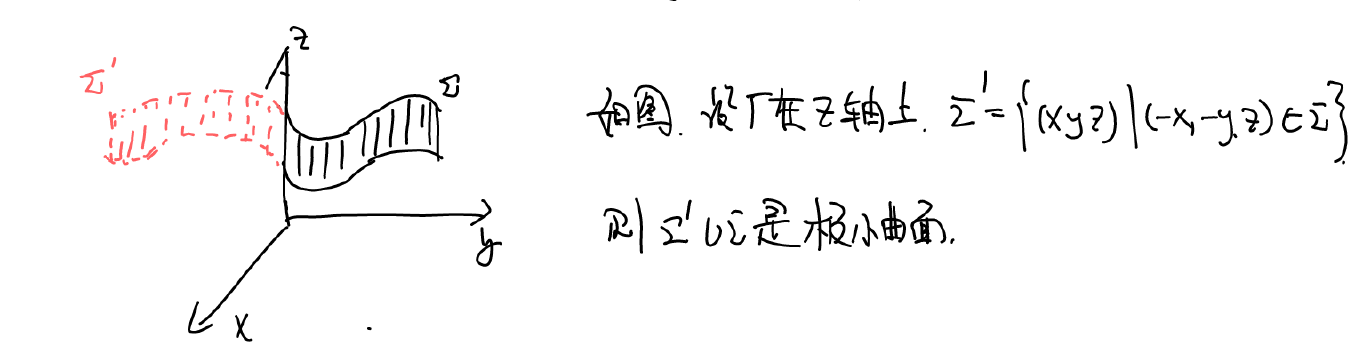 z
Σ'
Σ
y
x
如图. 设Γ在z轴上. Σ'={(x y z)|(-x,-y,z)∈Σ}
则Σ'∪Σ是极小曲面.